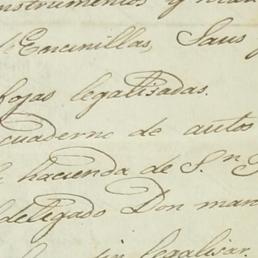 instrumentos y
Encinillas, Saus
fojas legalisadas.
cuaderno de autos
hacienda de S.n
delegado Don man
sin legalisar.